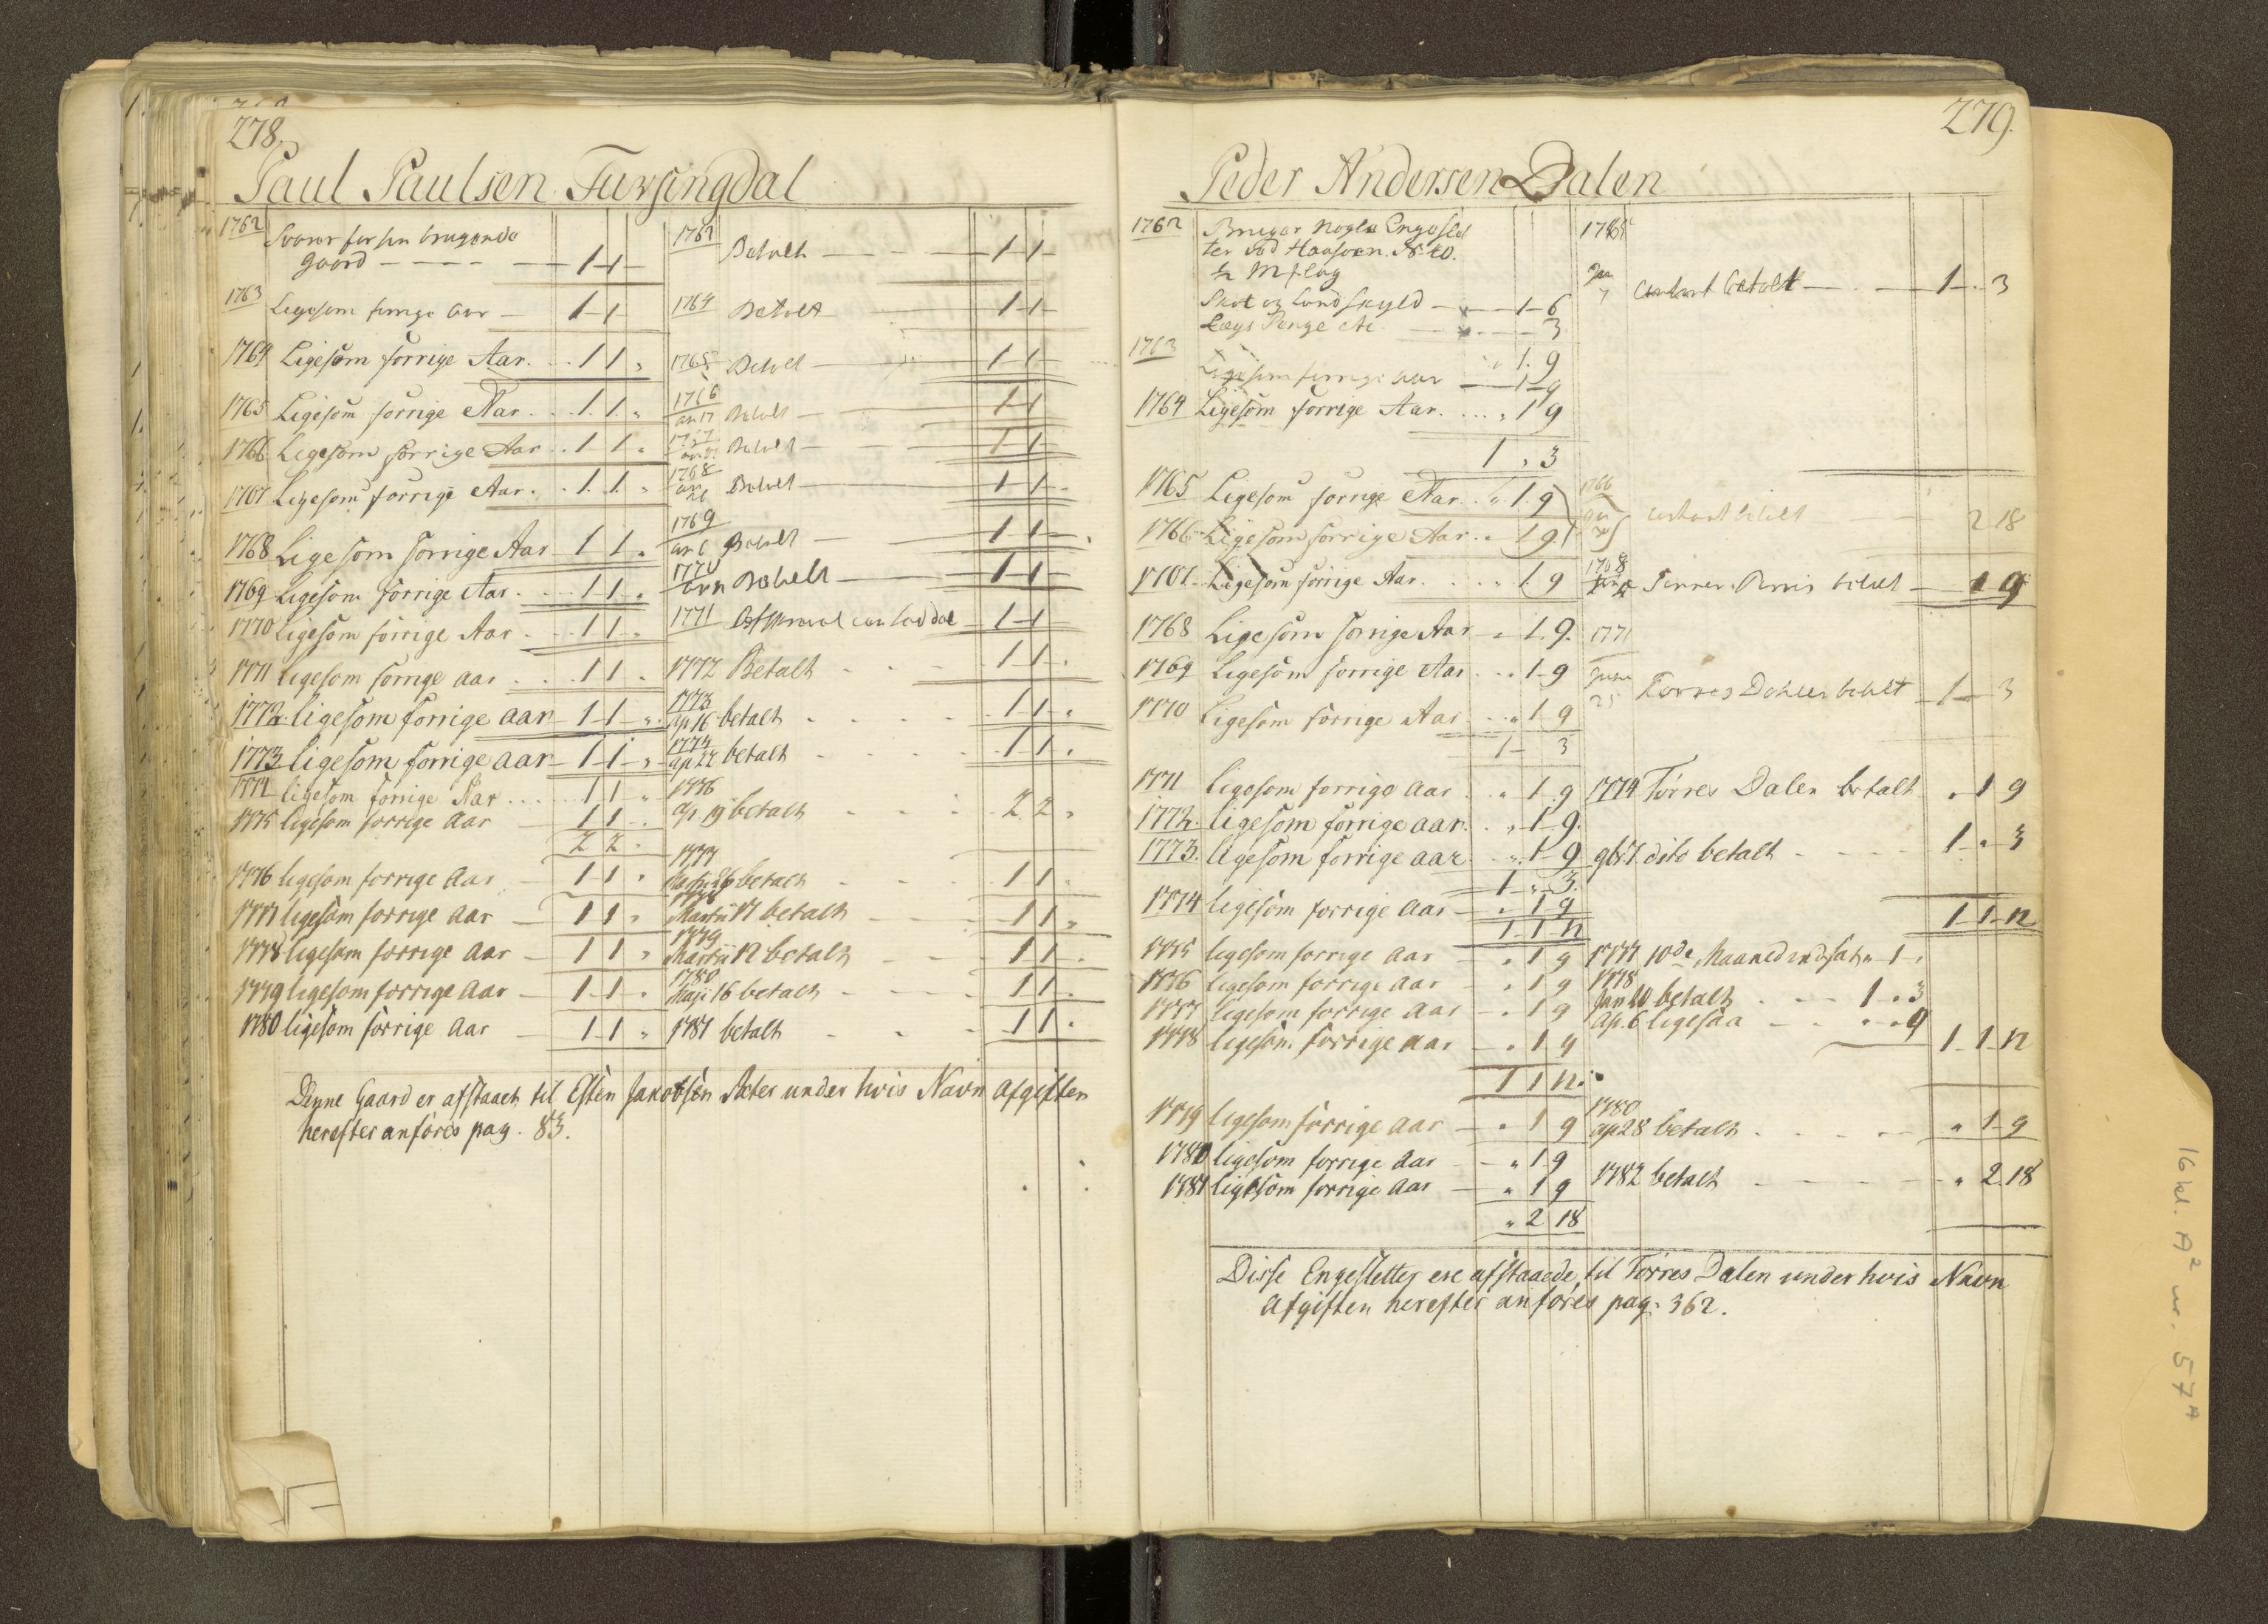 278.
Paul Paulsen Fursingdal
1762 Svarer for sin brugende
gaard - - - - 1-1-
1763 Ligesom forrige aar - 1-1
1764 Ligesom forrige Aar. . . 1 1 "
1765 Ligesom forrige Aar. . . 1. 1. "
1766 Ligesom forrige Aar . . 1 1 "
1767 Ligesom forrige Aar. . . 1. 1. "
1768 Ligesom forrige Aar - 1 1 "
1769 Ligesom forrige Aar. . . 1 1 "
1770 Ligesom forrige Aar. . . 1 1 "
1771 ligesom forrige aar . . . 1 1 "
1772. ligesom forrige aar - 1-1- "
1773 ligesom forrige aar - 1-1- "
1774 ligesom forrige Aar . . . 1 1 "
1775 ligesom forrige Aar - 1 1 "
2 2 "
1776 ligesom forrige Aar - 1-1 "
1777 ligesom forrige Aar - 1 1 "
1778 ligesom forrige Aar - 1 1 "
1779 ligesom forrige Aar - 1-1 "
1780 ligesom forrige Aar - 1-1 "
Betalt - - - 1-1-
1764 Betalt - 1-1-
1765 Betalt - 1-1-
1766
17 Betalt - 1-1
1767
Betalt - 1-1-
1768
Betalt - 1-1-
1769
Betalt - 1-1-
1770
Betalt - 1-1-
1771 1-1
1772 Betalt - - - 1 1 "
1773
Ap 16 betalt . . . . 1 1 "
1774
ap 22 betalt . . . . 1 1 "
1776
Ap 19 betalt . . . . 2 2 "
1777
Martii 26 betalt - - - 1 1 "
1778
Martii 17 betalt - - - 1 1 "
1779
Martii 12 betalt - - - 1 1 "
1780
Maji 16 betalt - - - - 1 1 "
1781 betalt - - - 1 1 "
Denne Gaard er afstaaet til Esten Jakobsen Sæter under hvis Navn afgiften
herefter anføres pag. 83.
279.
Peder Andersen Dalen
1762 Bruger nogle Engeslet
ter ved Haasoen. No 40.
Skat og Landskyld - - 1-6
Lægs Penge - - 3
" 1. 9
1763 Ligesom forrige aar - 1-9
1764 Ligesom forrige Aar. . . . " 1 9
1 " 3
1765 Ligesom forrige Aar . " 1. 9
1766 Ligesom forrige Aar. " 1 9.
1767. Ligesom forrige Aar. . . . " 1. 9
1768 Ligesom forrige Aar - " 1. 9.
1769 Ligesom forrige Aar . . " 1-9
1770 Ligesom forrige Aar . . " 1 9
1- 3
1771 ligesom forrige Aar . " 1 9
1772. ligesom forrige aar. . " 1-9.
1773. ligesom forrige aar . " 1-9
1-"-3.
1774 ligesom forrige Aar - " 1 9
1 1 12
1775 ligesom forrige Aar - " 1 9
1776 ligesom forrige Aar - " 1 9
1777 ligesom forrige Aar - " 1 9
1778 ligesom forrige Aar - " 1 9
1 1 12.
1779 ligesom forrige Aar - " 1 9
1780 ligesom forrige Aar - " 1 9
1781 ligesom forrige Aar - " 1 9
" 2 18
Jan
7 Contant betalt - - 1-"-3
1766
Contant betalt 2 18
1768
betalt - 1 9
1771
Junii
25 Torres Dahlen betalt - 1- 3
1774 Torres Dalen betalt " 1 9
9br 7. dito betalt - - - - 1-"-3
1-1-12
1777 10de Maaned indsat " 1 "
1778
Jan 20 betalt . - - 1 " 3
Ap. 6 ligesaa - - " " 9
1-1-12
1780
ap 28 betalt . . . - " 1-9
1782 betalt - - - - " 2 18
Disse Engesletter ere afstaaede til Torres Dalen under hvis Navn
Afgiften herefter anføres pag. 362.
16 kl. A² nr. 57ᴬ